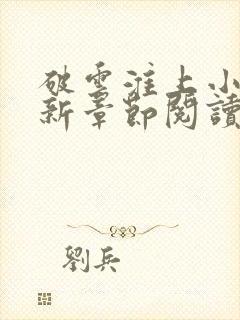 破雲淮上小
新章節閱讀
劉兵